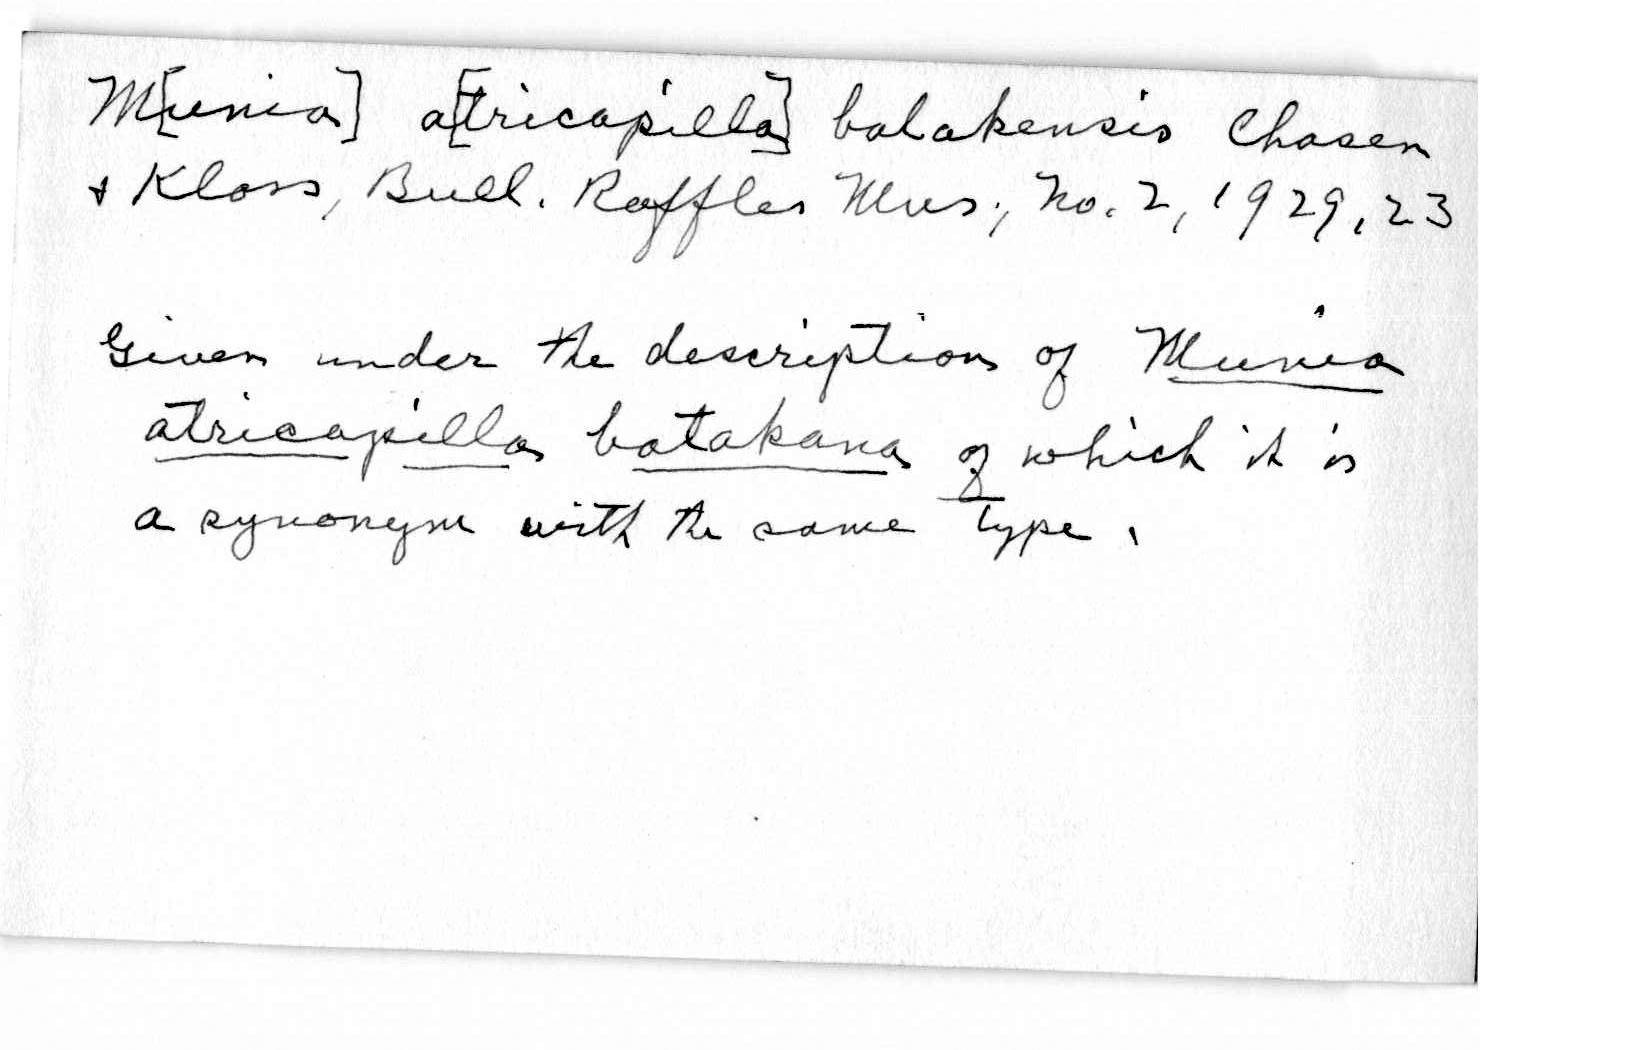 M[unia] a[tricapilla] batakensis Chasen
& Kloss, Bull. Raffles Mus., No. 2, 1929, 23
Given under the description of Munia
atricapilla batakana of which it is
a synonym with the same type.